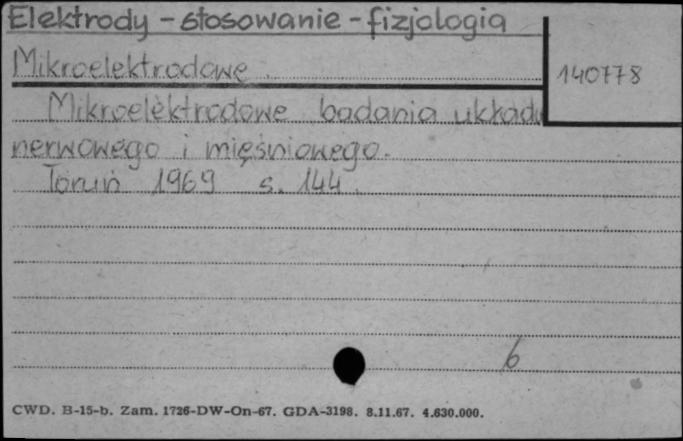 Elektrody - stosowanie - fizjologia
Mikroelektrodowe
140778
Mikroelektrodowe badania układu
nerwowego i mięśniowego.
Toruń 1969 s. 144.
6
CWD. B-15-b. Zam. 1726-DW-On-67. GDA-3198. 8.11.67. 4.630.000.